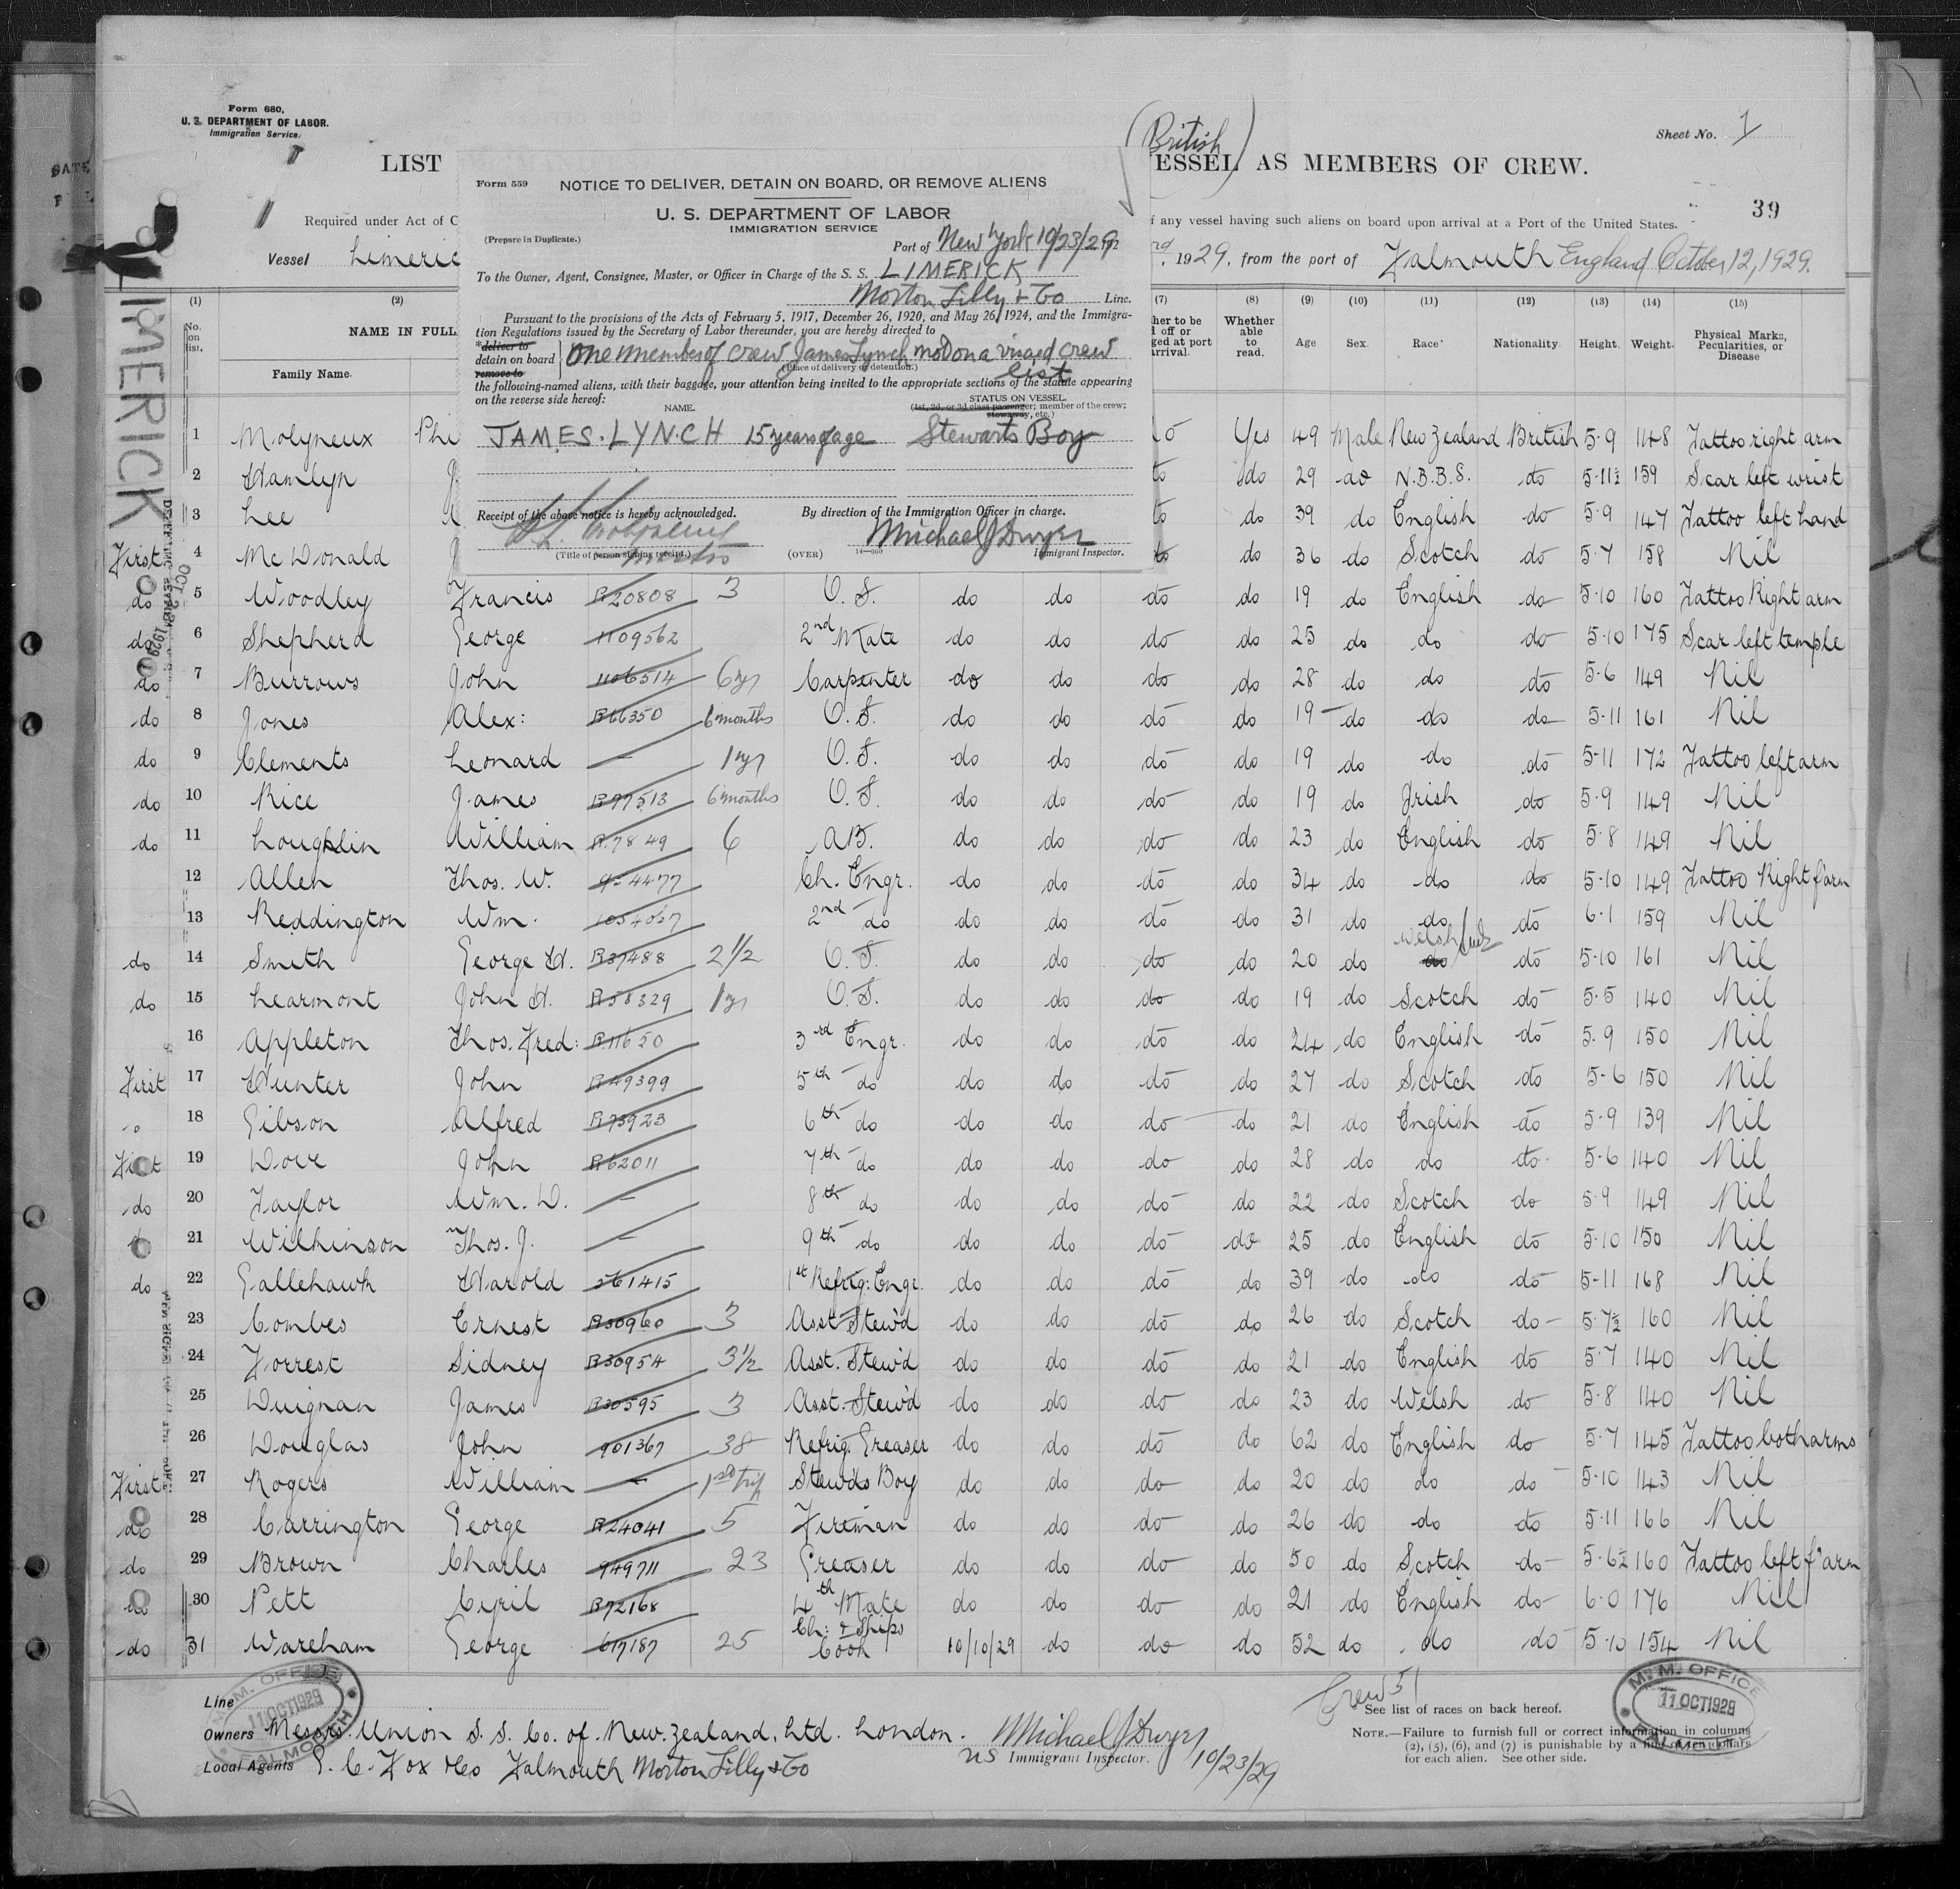 Form 680,
U. S. DEPARTMENT OF LABOR.
Immigration Service.
(British)
Sheet No. 1
LIST
ESSEL AS MEMBERS OF CREW.
39
Required under Act of
f any vessel having such aliens on board upon arrival at a Port of the United States.
Vessel Limeric
rd, 1929, from the port of Falmouth England October 12, 1929.
Form 559 NOTICE TO DELIVER, DETAIN ON BOARD, OR REMOVE ALIENS
U. S. DEPARTMENT OF LABOR
IMMIGRATION SERVICE
(Prepare in Duplicate.)
Port of New York 10/23/29 192
To the Owner, Agent, Consignee, Master, or Officer in Charge of the S. S. LIMERICK
Morton Lilly & Co Line.
Pursuant to the provisions of the Acts of February 5, 1917, December 26, 1920, and May 26, 1924, and the Immigra-
tion Regulations issued by the Secretary of Labor thereunder, you are hereby directed to
*deliver to
detain on board
remove to
One member of crew James Lynch not on a visaed crew
(Place of delivery or detention.)
list
the following-named aliens, with their baggage, your attention being invited to the appropriate sections of the statute appearing
on the reverse side hereof:
NAME.
STATUS ON VESSEL.
(1st, 2d, or 3d class passenger; member of the crew;
stowaway, etc.)
JAMES. LYNCH 15 years of age Stewarts Boy
Receipt of the above notice is hereby acknowledged.
By direction of the Immigration Officer in charge.
Michael J Dwyer
(Title of person signing receipt.)
(OVER)
Immigrant Inspector.
LIMERICK
(1) (2) (7) (8) (9) (10) (11) (12) (13) (14) (15)
No. on list.
NAME IN FULL
Family Name
her to be
d off or
ged at port
arrival.
Whether able to read.
Age
Sex
Race
Nationality
Height
Weight
Physical Marks, Pecularities, or Disease
1 Molyneux Phi to Yes 49 Male New Zealand British 5-9 148 Tattoo right arm
2 Hamlyn J. to do 29 do N.B.B.S. do 5-11½ 159 Scar left wrist
3 Lee to do 39 do English do 5-9 147 Tattoo left hand
First 4 McDonald J to do 36 do Scotch do 5-7 158 Nil
do 5 Woodley Francis R20808 3 O.S. do do do do 19 do English do 5-10 160 Tattoo Right arm
do 6 Shepherd George 1109562 2nd Mate do do do do 25 do do do 5-10 175 Scar left temple
do 7 Burrows John 1106514 6 yr Carpenter do do do do 28 do do do 5-6 149 Nil
do 8 Jones Alex: R66350 6 months O.S. do do do do 19 do do do 5-11 161 Nil
do 9 Clements Leonard — 1 yr O.S. do do do do 19 do do do 5-11 172 Tattoo left arm
do 10 Rice James R97513 6 months O.S. do do do do 19 do Irish do 5-9 149 Nil
do 11 Loughlin William R.7849 6 AB. do do do do 23 do English do 5-8 149 Nil
12 Allen Thos. W. 954477 Ch. Engr. do do do do 34 do do do 5-10 149 Tattoo Right f'arm
13 Reddington Wm. 1054067 2nd do do do do do 31 do do do 6-1 159 Nil
do 14 Smith George H. R37488 2 1/2 O.S. do do do do 20 do do Welsh do 5-10 161 Nil
do 15 Learmont John H. R58329 1 yr O.S. do do do do 19 do Scotch do 5-5 140 Nil
16 Appleton Thos. Fred: R.11620 3rd Engr. do do do do 24 do English do 5-9 150 Nil
First 17 Hunter John R49399 5th do do do do do 27 do Scotch do 5-6 150 Nil
18 Gibson Alfred R73923 6th do do do do do 21 do English do 5-9 139 Nil
First 19 Dove John R62011 7th do do do do do 28 do do do 5-6 140 Nil
do 20 Taylor Wm. D. — 8th do do do do do 22 do Scotch do 5-9 149 Nil
21 Wilkinson Thos. J. — 9th do do do do do 25 do English do 5-10 150 Nil
do 22 Gallehawk Harold 561415 1st Refrig: Engr. do do do do 39 do do do 5-11 168 Nil
23 Combes Ernest R30960 3 Asst Stew'd do do do do 26 do Scotch do 5-7½ 160 Nil
24 Forrest Sidney R30954 3½ Asst. Stew'd do do do do 21 do English do 5-7 140 Nil
25 Duignan James R30595 3 Asst. Stew'd do do do do 23 do Welsh do 5-8 140 Nil
26 Douglas John 901367 38 Refrig. Greaser do do do do 62 do English do 5-7 145 Tattoo both arms
First 27 Rogers William — 1st trip Stewds Boy do do do do 20 do do do 5-10 143 Nil
do 28 Carrington George R24041 5 Fireman do do do do 26 do do do 5-11 166 Nil
do 29 Brown Charles 949711 23 Greaser do do do do 50 do Scotch do 5-6½ 160 Tattoo left f'arm
do 30 Pett Cyril R72168 4th Mate do do do do 21 do English do 6-0 176 Nil
do 31 Wareham George 617187 25 Ch: & Ships Cook 10/10/29 do do do 52 do do do 5-10 154 Nil
Crew 51
Line
See list of races on back hereof.
Owners Messrs. Union S. S. Co. of New Zealand, Ltd. London.
Michael J Dwyer
US Immigrant Inspector. 10/23/29
Local Agents G. C. Fox & Co Falmouth Morton Lilly & Co
NOTE.—Failure to furnish full or correct information in columns
(2), (5), (6), and (7) is punishable by a fine of ten dollars
for each alien. See other side.
M. M. OFFICE
11 OCT 1929
FALMOUTH
M. M. OFFICE
11 OCT 1929
FALMOUTH